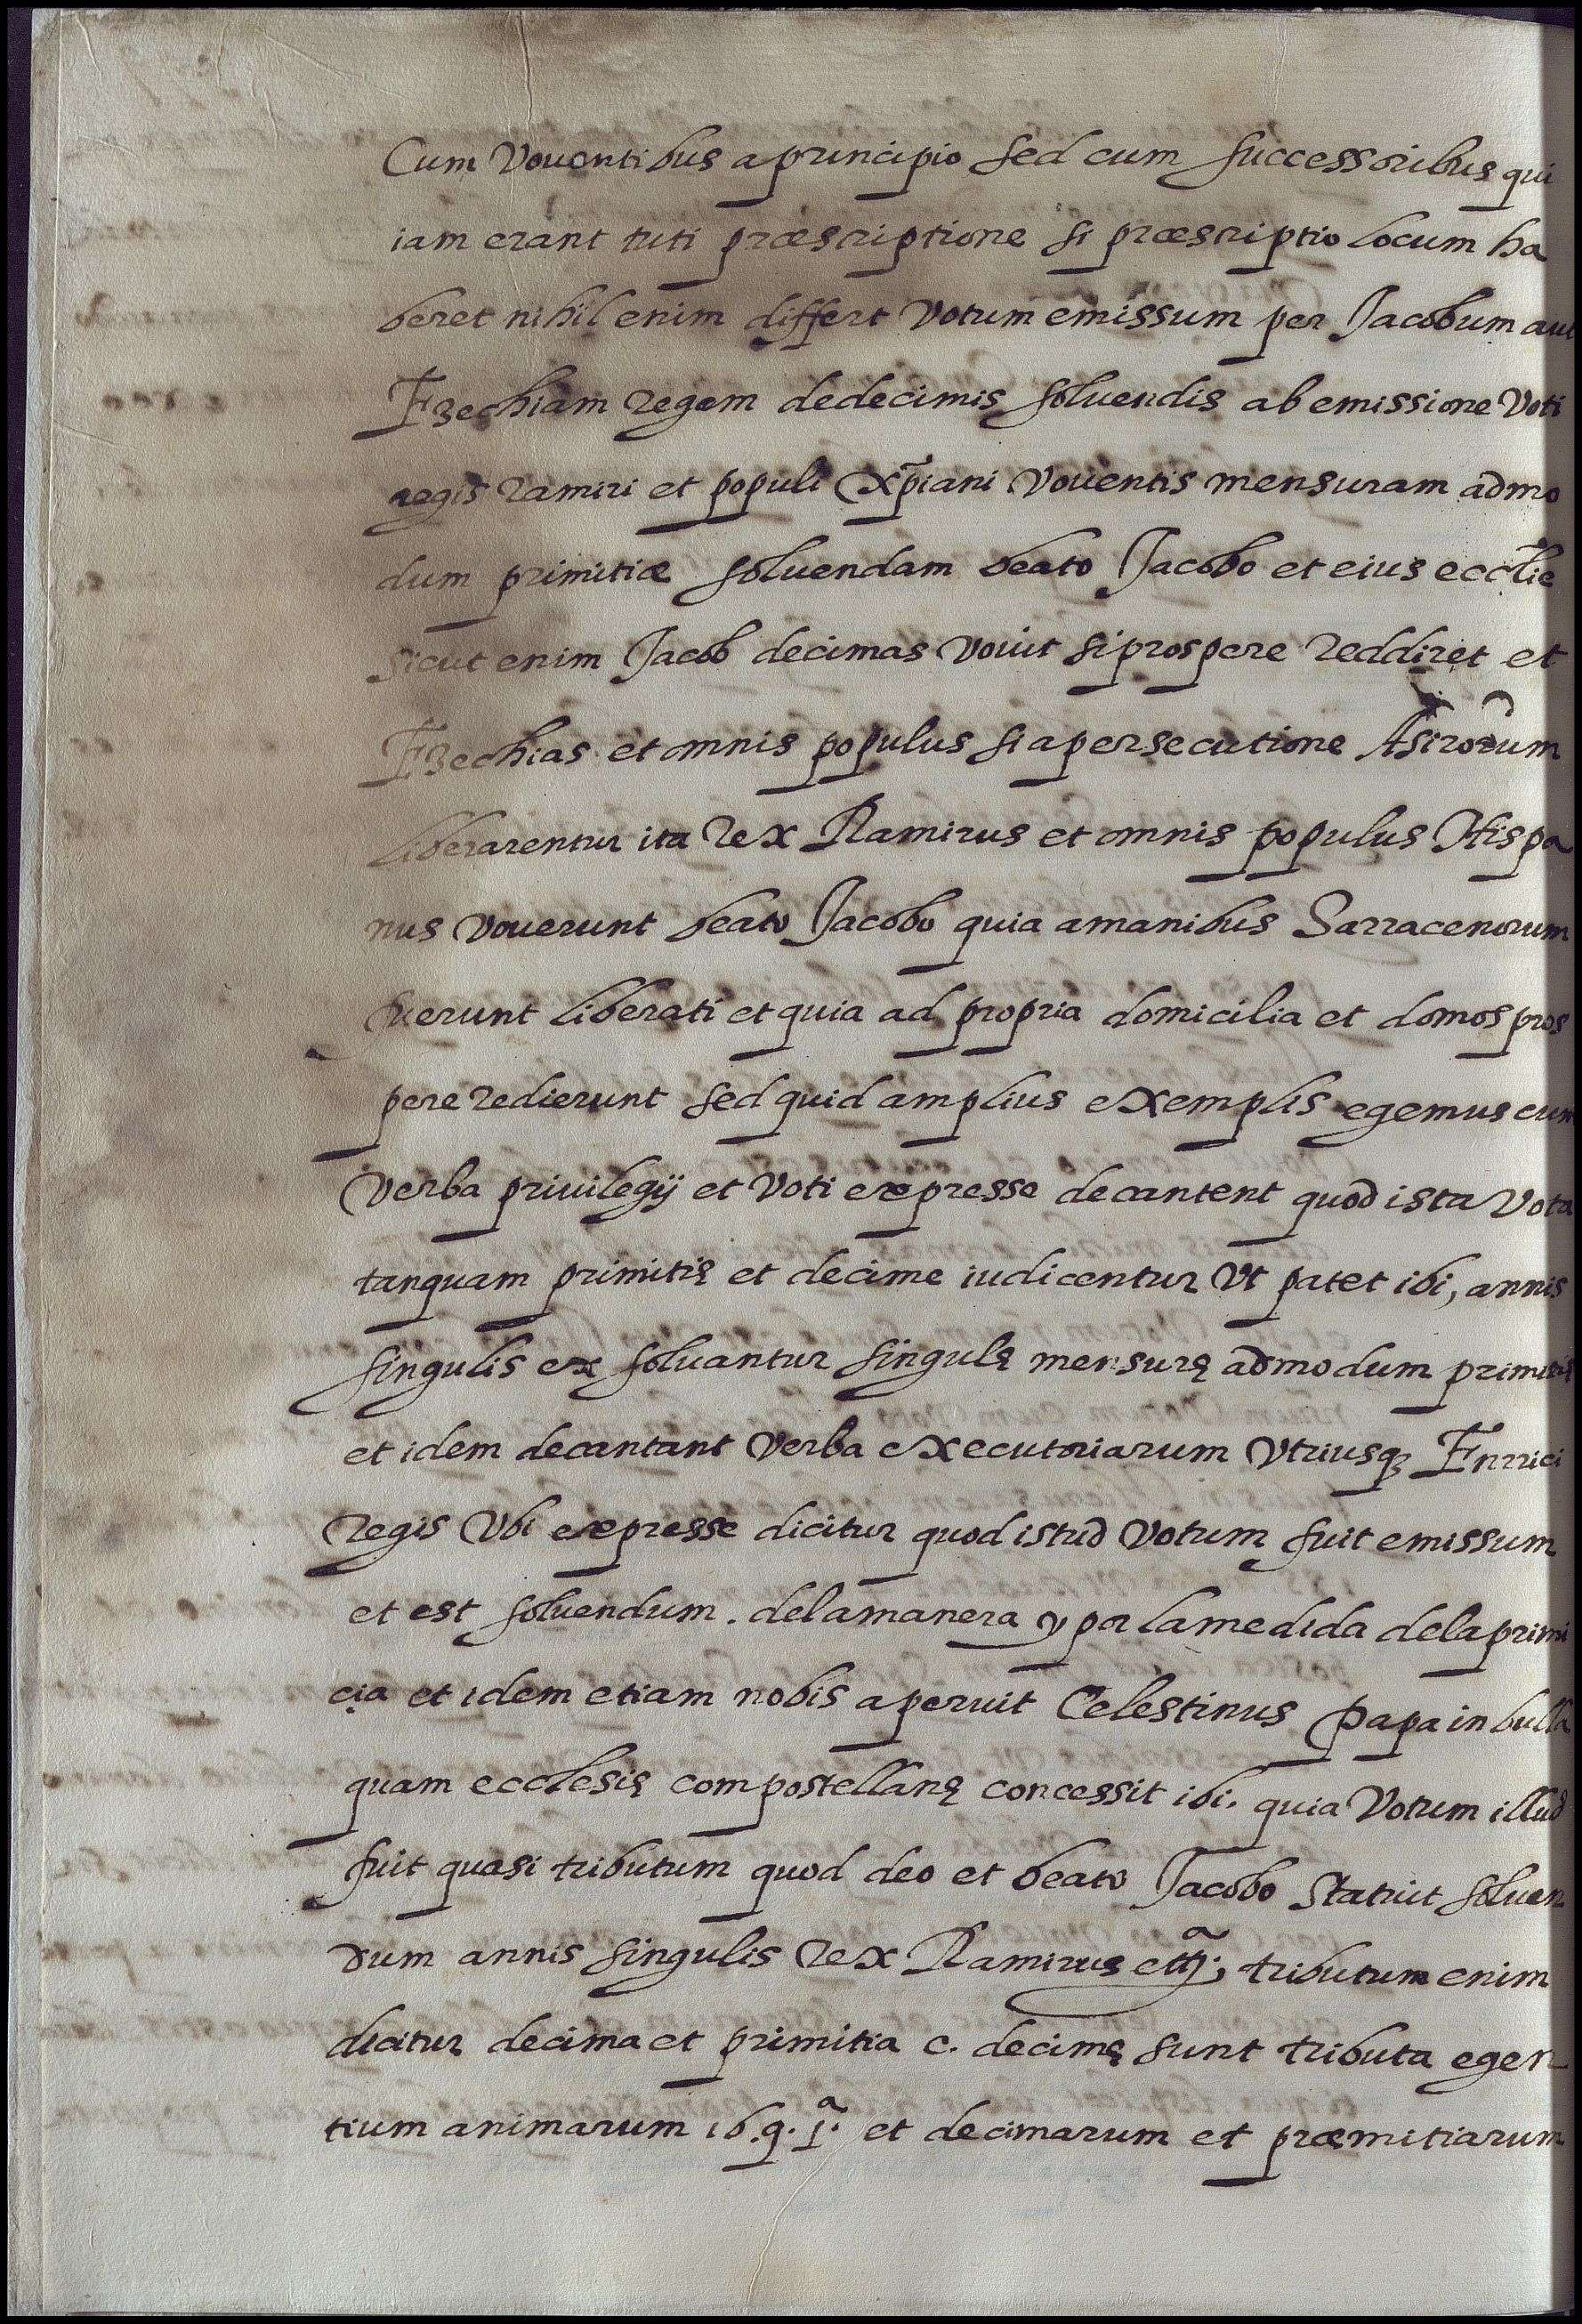 Cum Vouentibus a principio sed cum successoribus qui
iam erant tuti præscriptione si præscriptio locum ha
beret nihil enim differt votum emissum per Jacobum aut
Ezechiam regem de decimis soluendis ab emissione Voti
regis ramiri et populi xp̃iani Vouentis mensuram admo
dum primitiæ soluendam beato Jacobo et eius eccl̃ie
sicut enim Jacob decimas vouit si prospere reddiret et
Ezechias et omnis populus si a persecutione Asirorum
liberarentur ita rex Ramirus et omnis populus Hispa
nus vouerunt beato Jacobo quia a manibus Sarracenorum
fuerunt liberati et quia ad propria domicilia et domos pros
pere redierunt sed quid amplius exemplis egemus cum
verba priuilegij et Voti expresse decantent quod ista vota
tanquam primitię et decime iudicentur Vt patet ibi, annis
singulis ex soluantur singulę mensurę admodum primitię
et idem decantant verba executoriarum Vtriusq; Enrrici
regis Vbi expresse dicitur quod istud votum fuit emissum
et est soluendum. de la manera y por la medida de la primi
cia et idem etiam nobis aperuit Celestinus Papa in bulla
quam ecclesię compostellanę concessit ibi. quia Votum illud
fuit quasi tributum quod deo et beato Jacobo statuit soluen
dum annis singulis rex Ramirus tributum enim
dicitur decima et primitia c. decimę sunt tributa egen
tium animarum 16. q. 1ª. et decimarum et præmitiarum